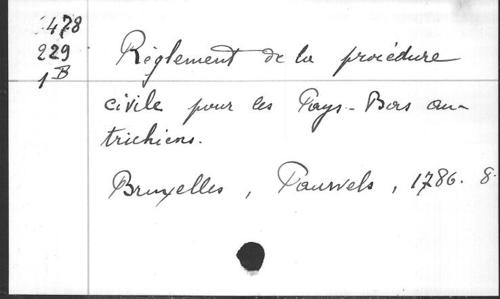 478
229
1 B
Règlement de la procédure
civile pour les Pays-Bas au-
trichiens.
Bruxelles, Pauwels, 1786. 8.